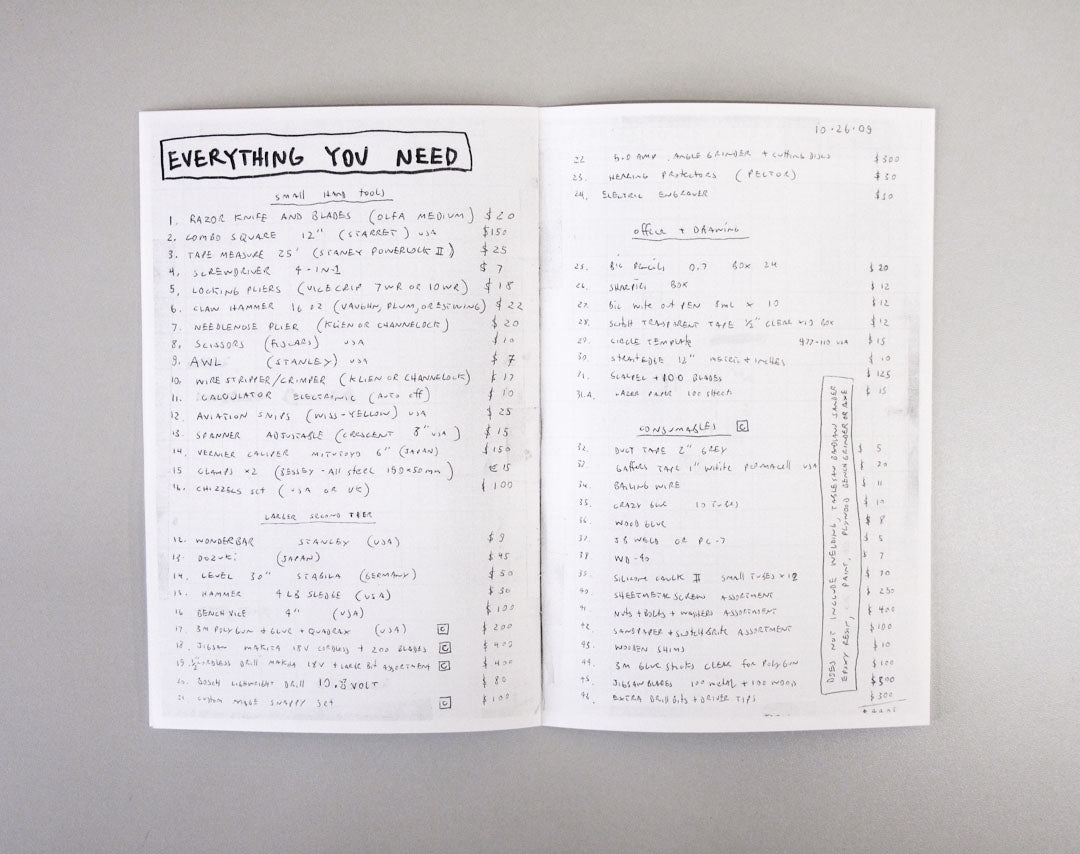 EVERYTHING YOU NEED
SMALL HAND TOOLS
1. RAZOR KNIFE AND BLADES (OLFA MEDIUM) $20
2. COMBO SQUARE 12" (STARRET) USA $150
3. TAPE MEASURE 25' (STANEY POWERLOCK II) $25
4. SCREWDRIVER 4-IN-1 $7
5. LOCKING PLIERS (VICEGRIP 7WR OR 10WR) $18
6. CLAW HAMMER 16 OZ (VAUGHN, PLUM, OR ESTWING) $22
7. NEEDLENOSE PLIER (KLIEN OR CHANNELOCK) $20
8. SCISSORS (FISCARS) USA $10
9. AWL (STANLEY) USA $7
10. WIRE STRIPPER/CRIMPER (KLIEN OR CHANNELOCK) $17
11. CALCULATOR ELECTRONIC (AUTO OFF) $10
12. AVIATION SNIPS (WISS-YELLOW) USA $25
13. SPANNER ADJUSTABLE (CRESCENT 8" USA) $15
14. VERNIER CALIPER MITUTOYO 6" (JAPAN) $150
15 CLAMPS x2 (BESSEY-All steel 150x50mm) €15
16. CHIZZELS SET (USA OR UK) $100
LARGER SECOND TIER
12. WONDERBAR STANLEY (USA) $9
13. DOZUKI (JAPAN) $45
14. LEVEL 30" STABILA (GERMANY) $50
15. HAMMER 4 LB SLEDGE (USA) $30
16 BENCH VICE 4" (USA) $100
17. 3M POLYGUN + GLUE + QUADRAX (USA) C $200
18. JIGSAW MAKITA 18V CORDLESS + 200 BLADES C $400
19. ½" CORDLESS DRILL MAKITA 18V + LARGE BIT ASSORTMENT C $400
20. BOSCH LIGHWRIGHT DRILL 10.8 VOLT $80
21. CUSTOM MADE SNAPPY SET C $100
10·26·09
22 5.0 AMP ANGLE GRINDER + CUTTING DISCS $300
23. HEARING PROTECTORS (PELTOR) $30
24. ELECTRIC ENGRAVER
OFFICE + DRAWING
25. BIC PENCILS 0.7 BOX 24 $20
26. SHARPIES BOX $12
27. BIC WITE OUT PEN 8ML x 10 $12
28. SCOTCH TRANSPARENT TAPE ½" CLEAR x10 BOX $12
29. CIRCLE TEMPLATE 977-110 USA $15
30. STRAITEDGE 12" METRIC + INCHES $10
SCALPEL + 100 BLADES $125
31.A. LAZER PAPER 100 SHEETS $15
CONSUMABLES C
32. DUCT TAPE 2" GREY $5
33. GAFFERS TAPE 1" WHITE PERMACELL USA $20
34. BAILING WIRE $11
35. CRAZY GLUE 10 TUBES $10
36 WOOD GLUE $8
37. JB WELD OR PC-7 $5
38 WD-40 $7
SILICONE CAULK II SMALL TUBES x 12 $70
40. SHEETMETAL SCREW ASSORTMENT $250
41. NUTS + BOLTS + WASHERS ASSORTMENT $400
42. SANDPAPER + SCOTCHBRITE ASSORTMENT $100
43. WOODEN SHIMS $10
44. 3M GLUE STICKS CLEAR FOR POLYGUN $100
45. JIGSAW BLADES 100 METAL + 100 WOOD $300
46. EXTRA DRILL BITS + DRIVER TIPS $300
DOES NOT INCLUDE WELDING, TABLESAW BANDSAW SANDER
EPOXY RESIN, PAINT, PLYWOOD BENCHGRINDER OR AXE